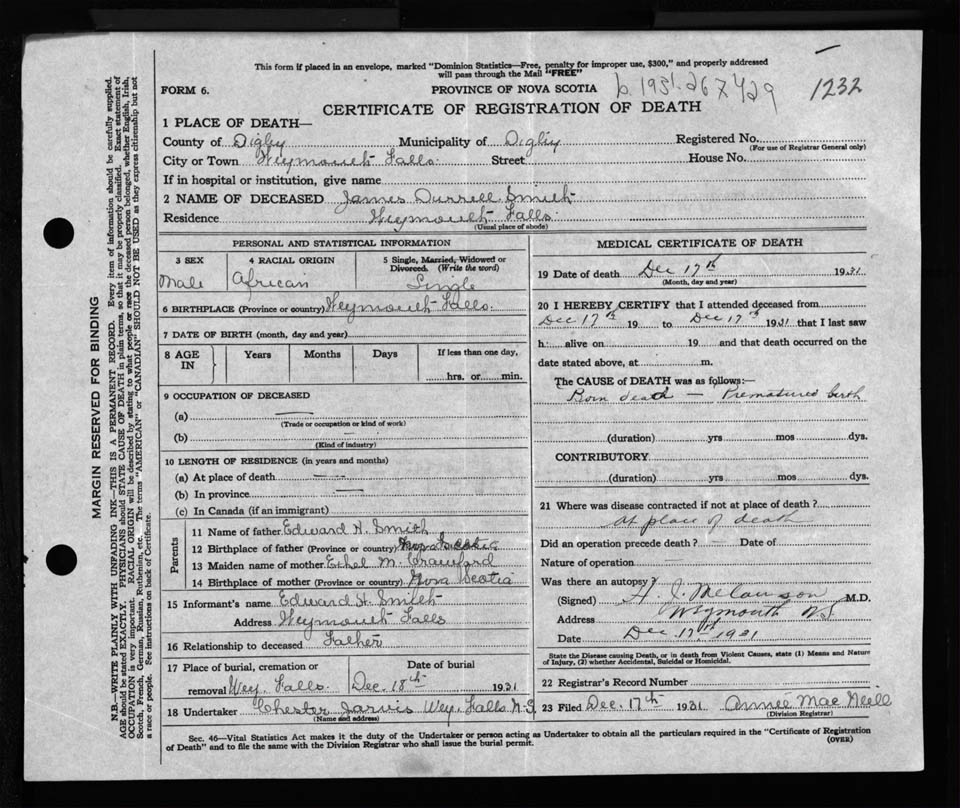 This form if placed in an envelope, marked "Dominion Statistics—Free, penalty for improper use, $300," and properly addressed
will pass through the Mail "FREE"
FORM 6.
PROVINCE OF NOVA SCOTIA
b. 1931-267429
1232
CERTIFICATE OF REGISTRATION OF DEATH
1 PLACE OF DEATH—
County of Digby Municipality of Digby Registered No.
(For use of Registrar General only)
City or Town Weymouth Falls. Street House No.
If in hospital or institution, give name
2 NAME OF DECEASED James Durrell Smith
Residence Weymouth Falls.
(Usual place of abode)
PERSONAL AND STATISTICAL INFORMATION
3 SEX 4 RACIAL ORIGIN 5 Single, Married, Widowed or
Divorced. (Write the word)
Male African Single
6 BIRTHPLACE (Province or country) Weymouth Falls.
7 DATE OF BIRTH (month, day and year)
8 AGE IN Years Months Days If less than one day,
hrs. or min.
9 OCCUPATION OF DECEASED
(a) —
(Trade or occupation or kind of work)
(b) —
(Kind of industry)
10 LENGTH OF RESIDENCE (in years and months)
(a) At place of death —
(b) In province —
(c) In Canada (if an immigrant)
Parents
11 Name of father Edward H. Smith
12 Birthplace of father (Province or country) Nova Scotia
13 Maiden name of mother Ethel M. Crawford
14 Birthplace of mother (Province or country) Nova Scotia
15 Informant's name Edward H. Smith
Address Weymouth Falls
16 Relationship to deceased Father
17 Place of burial, cremation or Date of burial
removal Wey. Falls. Dec. 18th 1931
18 Undertaker Chester Jarvis Wey. Falls N.S.
(Name and address)
MEDICAL CERTIFICATE OF DEATH
19 Date of death Dec 17th 1931
(Month, day and year)
20 I HEREBY CERTIFY that I attended deceased from
Dec 17th 19 to Dec 17th 1931 that I last saw
h alive on 19 and that death occurred on the
date stated above, at m.
The CAUSE OF DEATH was as follows:—
Born dead — Prematured birth
(duration) yrs mos dys.
CONTRIBUTORY
(duration) yrs mos dys.
21 Where was disease contracted if not at place of death?
At place of death
Did an operation precede death? — Date of
Nature of operation —
Was there an autopsy?
(Signed) M.D.
Address Weymouth NS
Date Dec 17th 1931
State the Disease causing Death, or in death from Violent Causes, state (1) Means and Nature
of Injury, (2) whether Accidental, Suicidal or Homicidal.
22 Registrar's Record Number
23 Filed Dec. 17th 1931 Annie Mae
(Division Registrar)
Sec. 46—Vital Statistics Act makes it the duty of the Undertaker or person acting as Undertaker to obtain all the particulars required in the "Certificate of Registration
of Death" and to file the same with the Division Registrar who shall issue the burial permit.
(OVER)
MARGIN RESERVED FOR BINDING
N.B.—WRITE PLAINLY, WITH UNFADING INK—THIS IS A PERMANENT RECORD. Every item of information should be carefully supplied.
AGE should be stated EXACTLY. PHYSICIANS should STATE CAUSE OF DEATH in plain terms, so that it may be properly classified. Exact statement of
OCCUPATION is very important. RACIAL ORIGIN will be described by stating to what people or race the deceased person belonged, whether English, Irish,
Scotch, French, German, Russian, Ruthenian, etc. The terms "AMERICAN" or "CANADIAN" SHOULD NOT BE USED as they express citizenship but not
a race or people. See instructions on back of Certificate.